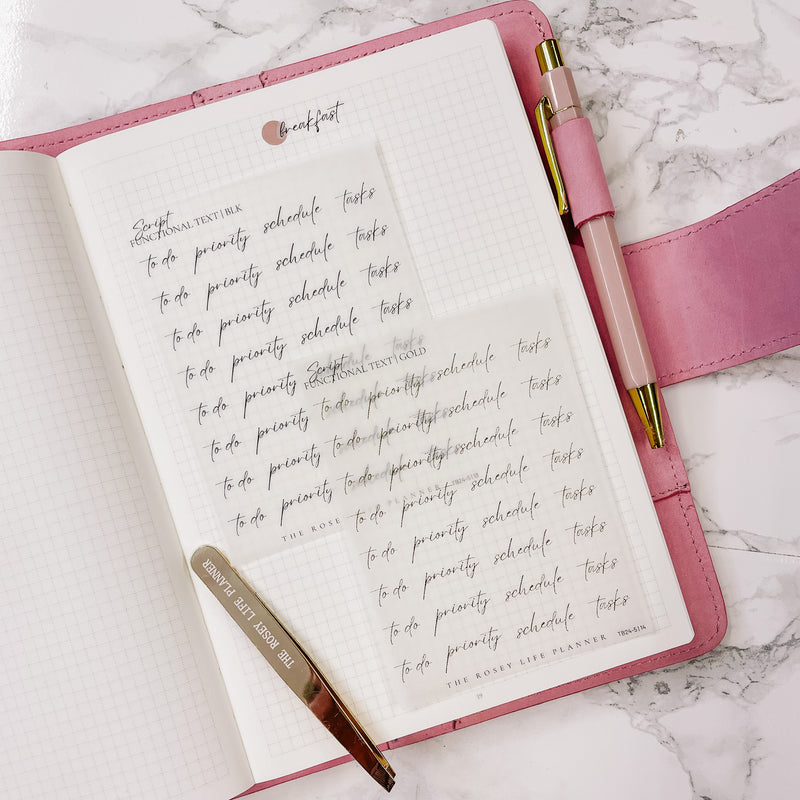 breakfast
Script
FUNCTIONAL TEXT | BLK
to do priority schedule tasks
to do priority schedule tasks
to do priority schedule tasks
to do priority schedule tasks
to do priority
to do priority
to do priority
to do priority
THE ROSE PLANNER
Script
FUNCTIONAL TEXT | GOLD
to do priority schedule tasks
to do priority schedule tasks
to do priority schedule tasks
to do priority schedule tasks
to do priority schedule tasks
to do priority schedule tasks
to do priority schedule tasks
to do priority schedule tasks
THE ROSEY LIFE PLANNER TB24-5114
THE ROSEY LIFE PLANNER